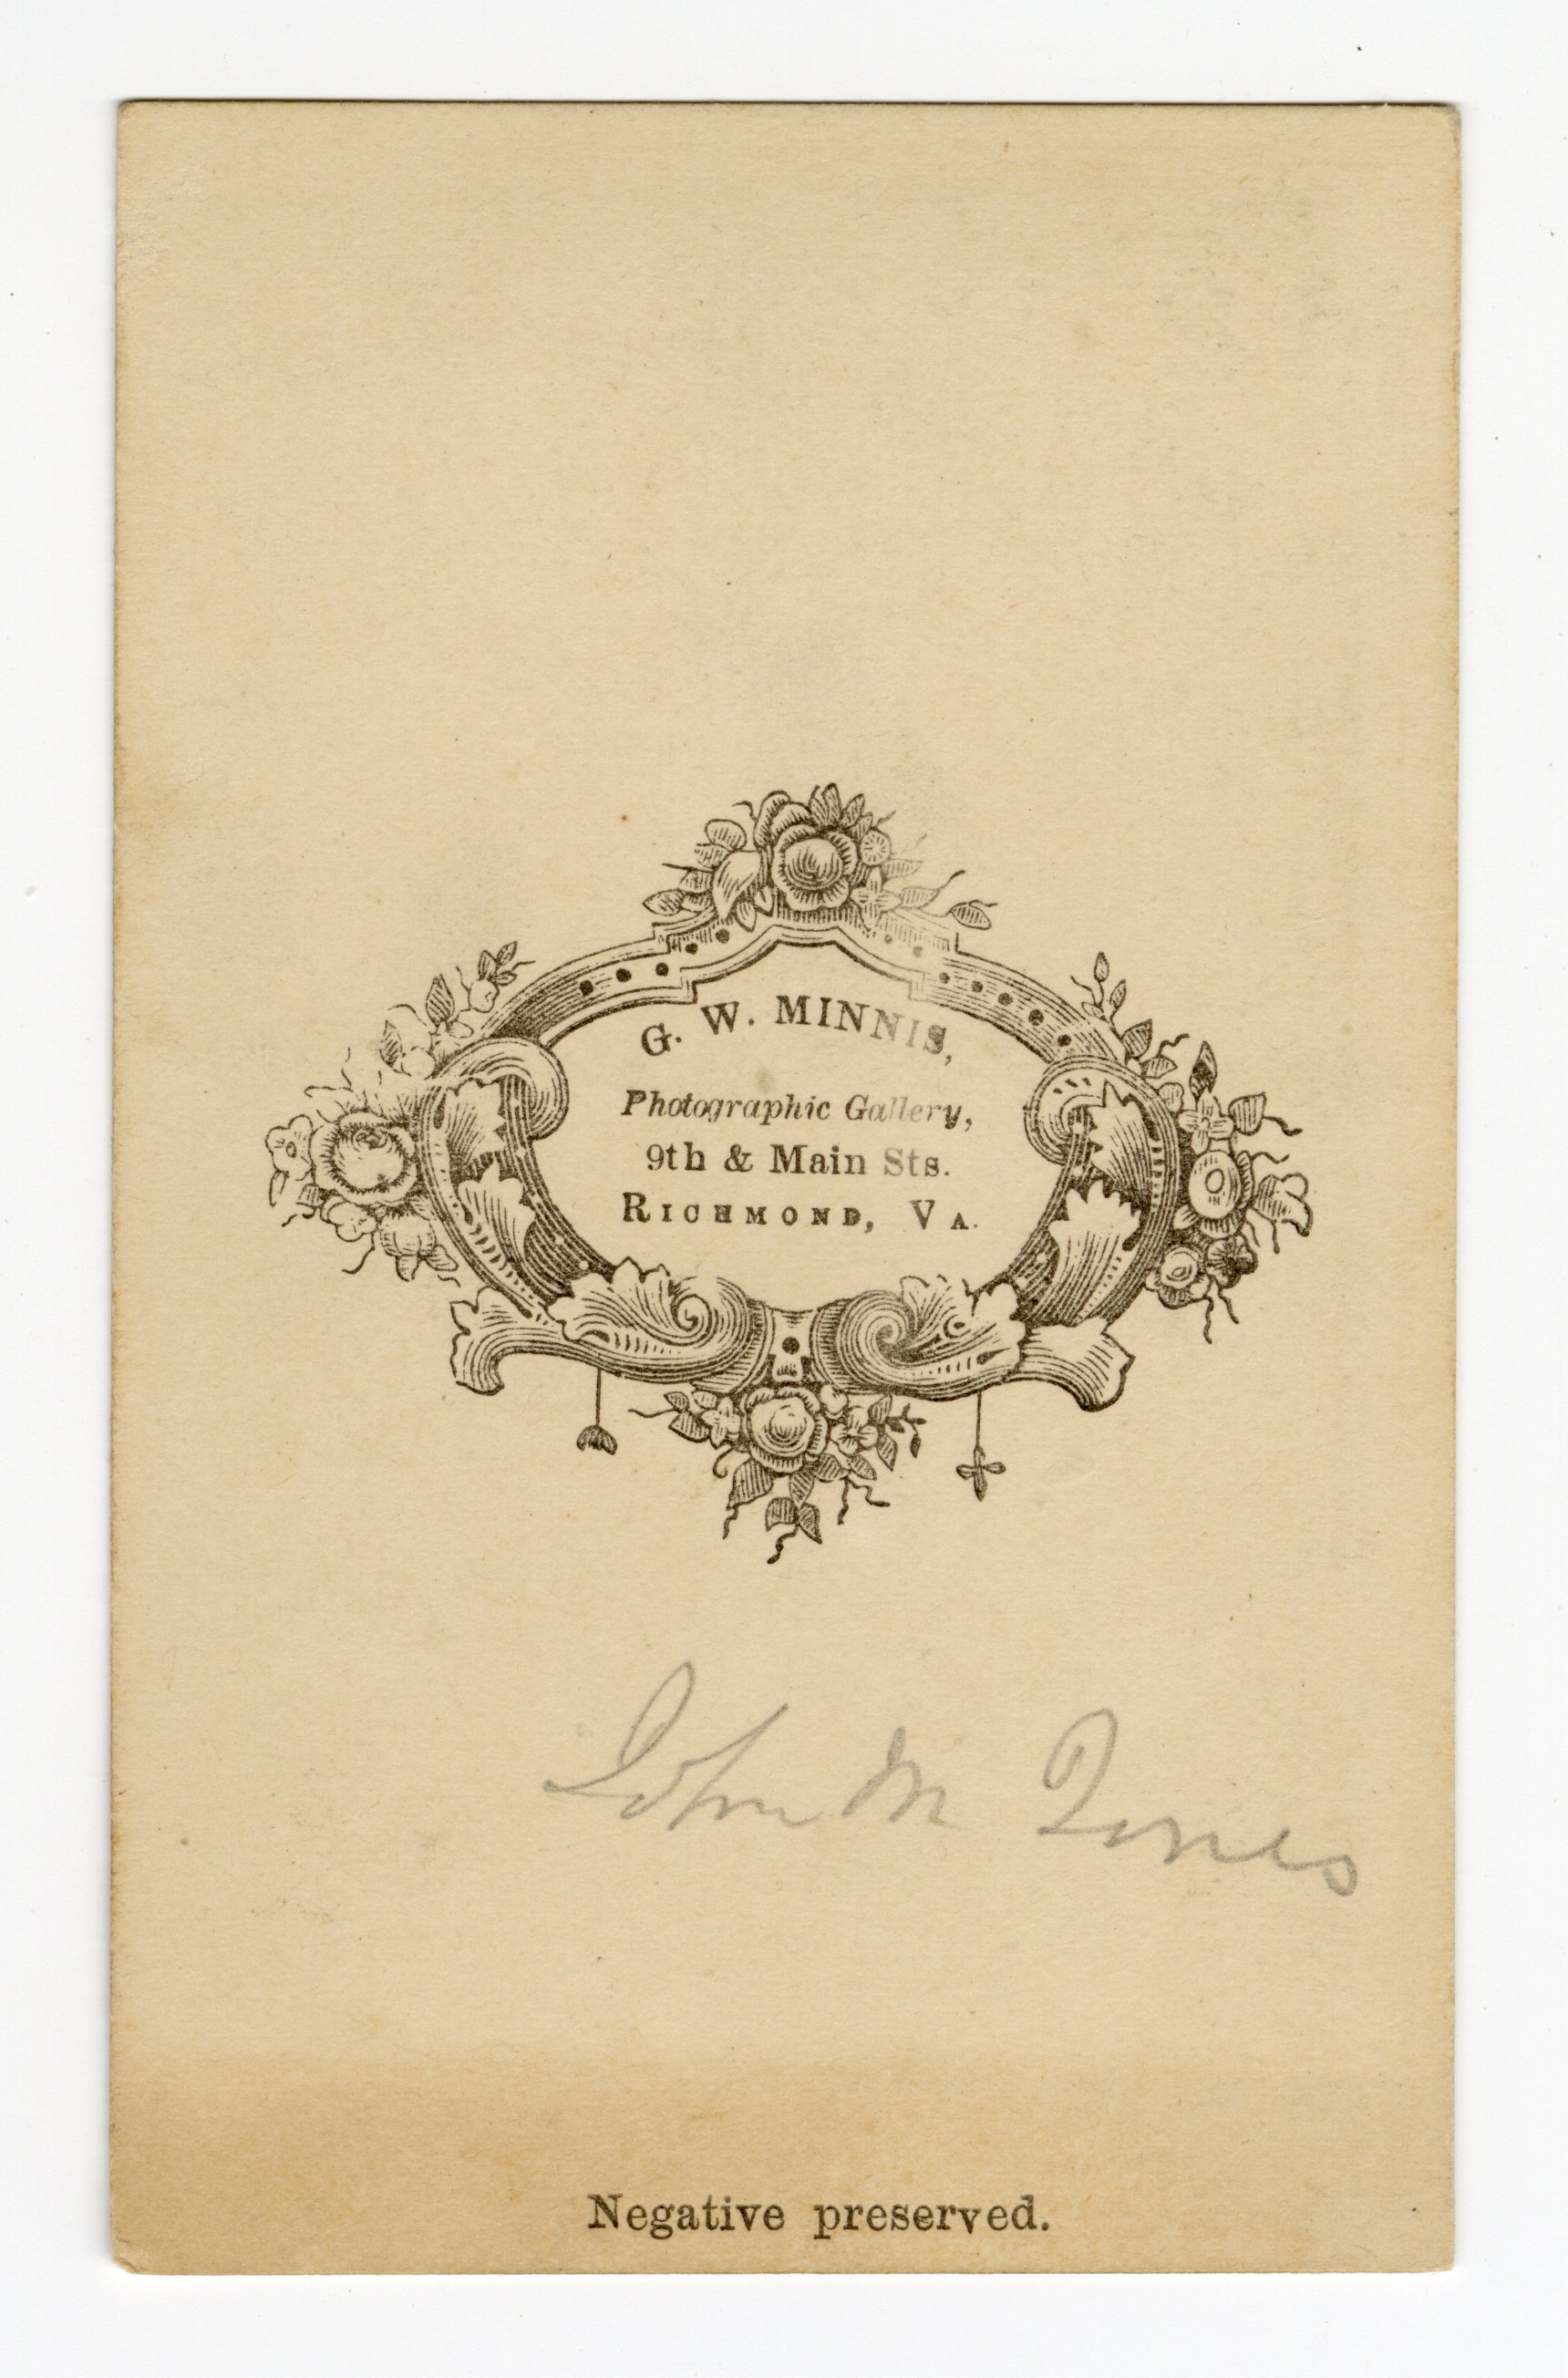 G. W. MINNIS,
Photographic Gallery,
9th & Main Sts.
RICHMOND, VA.
John M Jones
Negative preserved.